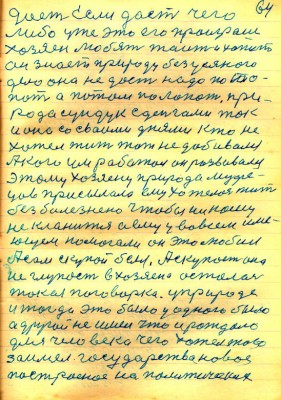 64
дает Если даст чего
либо уже это его проиграш
хозяен любят таит и копит
он знает природу без усякого
она не даст надо по
пот а потом полопот. при-
рода сундук с денгами так
и оно со своими днями кто не
хотел тит тот не добивался
А кого им работал он розвивали
этому хозяену природа мудре-
цов присылала ему хотелося жит
без болезнено чтобы никому
не кланится а ему у вовсем име-
ющем помогали он это любил
А сам скупой был, А скупость она
не глупость в хозяена осталася
такая поговорка. у природе
и тогда это было у одного было
а другий не имел что и рождало
для человека чего хотел того
заимел. государства новое
построеное на политических